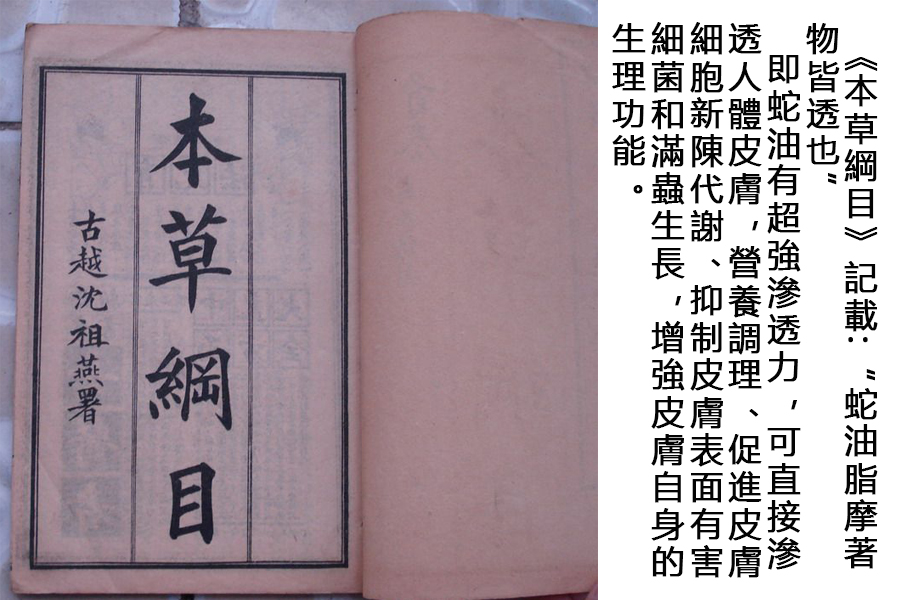 《本草綱目》記載:“蛇油脂摩著
物皆透也”
即蛇油有超強滲透力,可直接滲
透人體皮膚,營養調理、促進皮膚
細胞新陳代謝、抑制皮膚表面有害
細菌和滿蟲生長,增強皮膚自身的
生理功能。
本草綱目
古越沈祖燕署